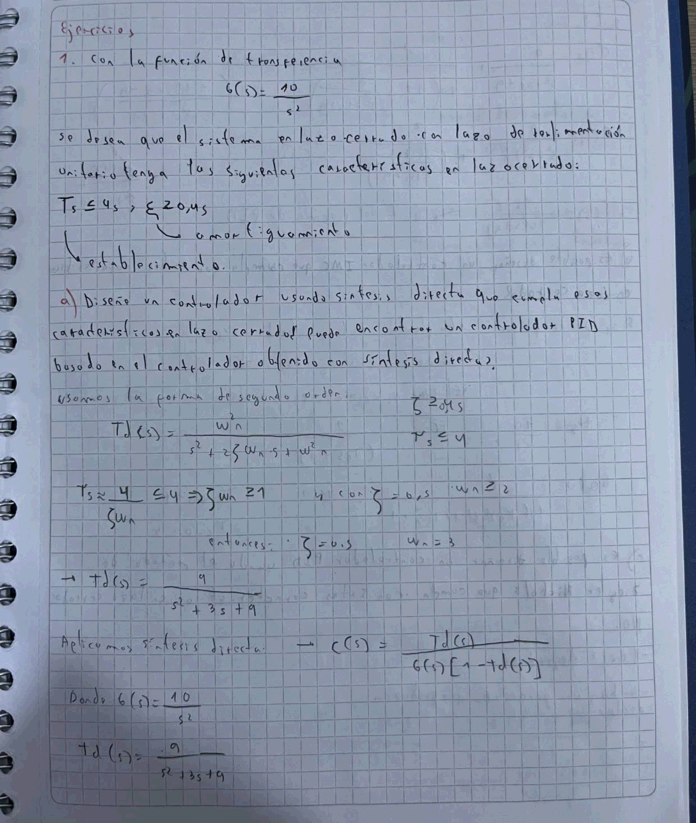 Ejercicios
1. Con la función de transferencia
G(s) = 10/s²
se desea que el sistema en lazo cerrado con lazo de
unitario tenga las siguientes características en lazo cerrado:
Ts ≤ 4s, ξ ≥ 0,45
amortiguamiento
establecimiento.
a) Diseñe un controlador usando síntesis directa que cumpla esas
características en lazo cerrado¿ Puede encontrar un controlador PID
basado en el controlador obtenido con síntesis directa?.
usamos la forma de segundo orden:
Td(s) = w²n / s² + 2ζwn s + w²n
ζ ≥ 0,45
Ts ≤ 4
Ts ≈ 4/ζwn ≤ 4 ⇒ ζwn ≥ 1 y con ζ = 0,5 wn ≥ 2
entonces: ζ = 0.5 wn = 3
→ Td(s) = 9 / s² + 3s + 9
Aplicamos síntesis directa → C(s) = Td(s) / G(s) [1 - Td(s)]
Donde G(s) = 10/s²
Td(s) = 9 / s² + 3s + 9